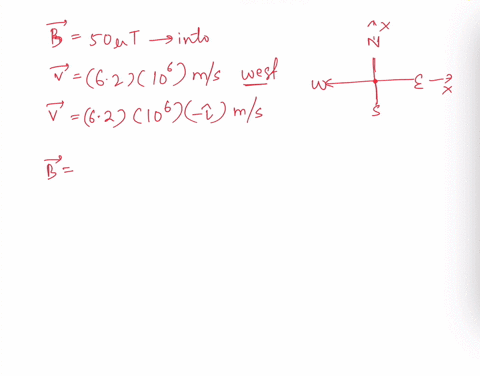 B⃗ = 50μT → into
v⃗ = (6.2)(10⁶) m/s west
V⃗ = (6.2)(10⁶)(-î) m/s
B⃗ =
^x
N
W
E → x
S